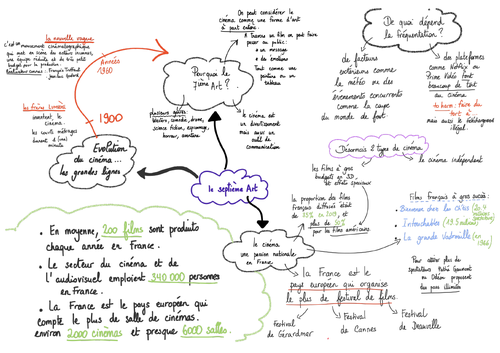 la nouvelle vague
c'est un mouvement cinématographique
qui met en scène des acteurs inconnus,
une équipe réduite et de très petit
budget pour la production.
réalisateur connus : François Truffaut
Jean-Luc Godard
Années
1960
les frères Lumière
inventent, le
cinéma.
les courts métrages
durent 1 (une)
minute
1900
Evolution
du cinéma...
les grandes lignes
On peut considérer le
cinéma comme une forme d'art
à part entière :
A travers un film on peut faire
passer au public :
• un message
• des émotions
Tout comme une
peinture ou un
tableau
Pourquoi le
7ième Art ?
plusieurs genres
Western, comédie, drame,
science fiction, espionnage,
horreur, aventure
le cinéma est
un divertissement
mais aussi un
outil de
communication
De quoi dépend
la fréquentation ?
de facteurs
extérieurs comme
la météo ou des
évènements concurrents
comme la coupe
du monde de foot
des plateformes
comme Netflix ou
Prime Vidéo font
beaucoup de tort
au cinéma
mais aussi le téléchargement
illégal.
Désormais 2 types de cinéma
les films à gros
budget en 3D,
effets spéciaux
le cinéma indépendant
le septième Art
la proportion des films
Français diffusé était
de 35% en 2019, et
plus de
pour les films américains.
le cinéma
une passion nationale
en France
Films français à gros succès :
• Bienvenue chez les ch'tis
• Intouchables
• La grande Vadrouille
(en 1966)
Pour attirer plus de
spectateurs Pathé Gaumont
ou Odéon proposent
des pass illimités
• En moyenne, 200 films sont produits
chaque année en France.
• Le secteur du cinéma et de
l'audiovisuel emploient 340 000 personnes
en France.
• La France est le pays européen qui
compte le plus de salle de cinémas.
environ 2000 cinémas et presque 6000 salles.
la France est le
pays européen qui organise
le plus de festival de films.
Festival
de Gérardmer
Festival
de Cannes
Festival
de Deauville